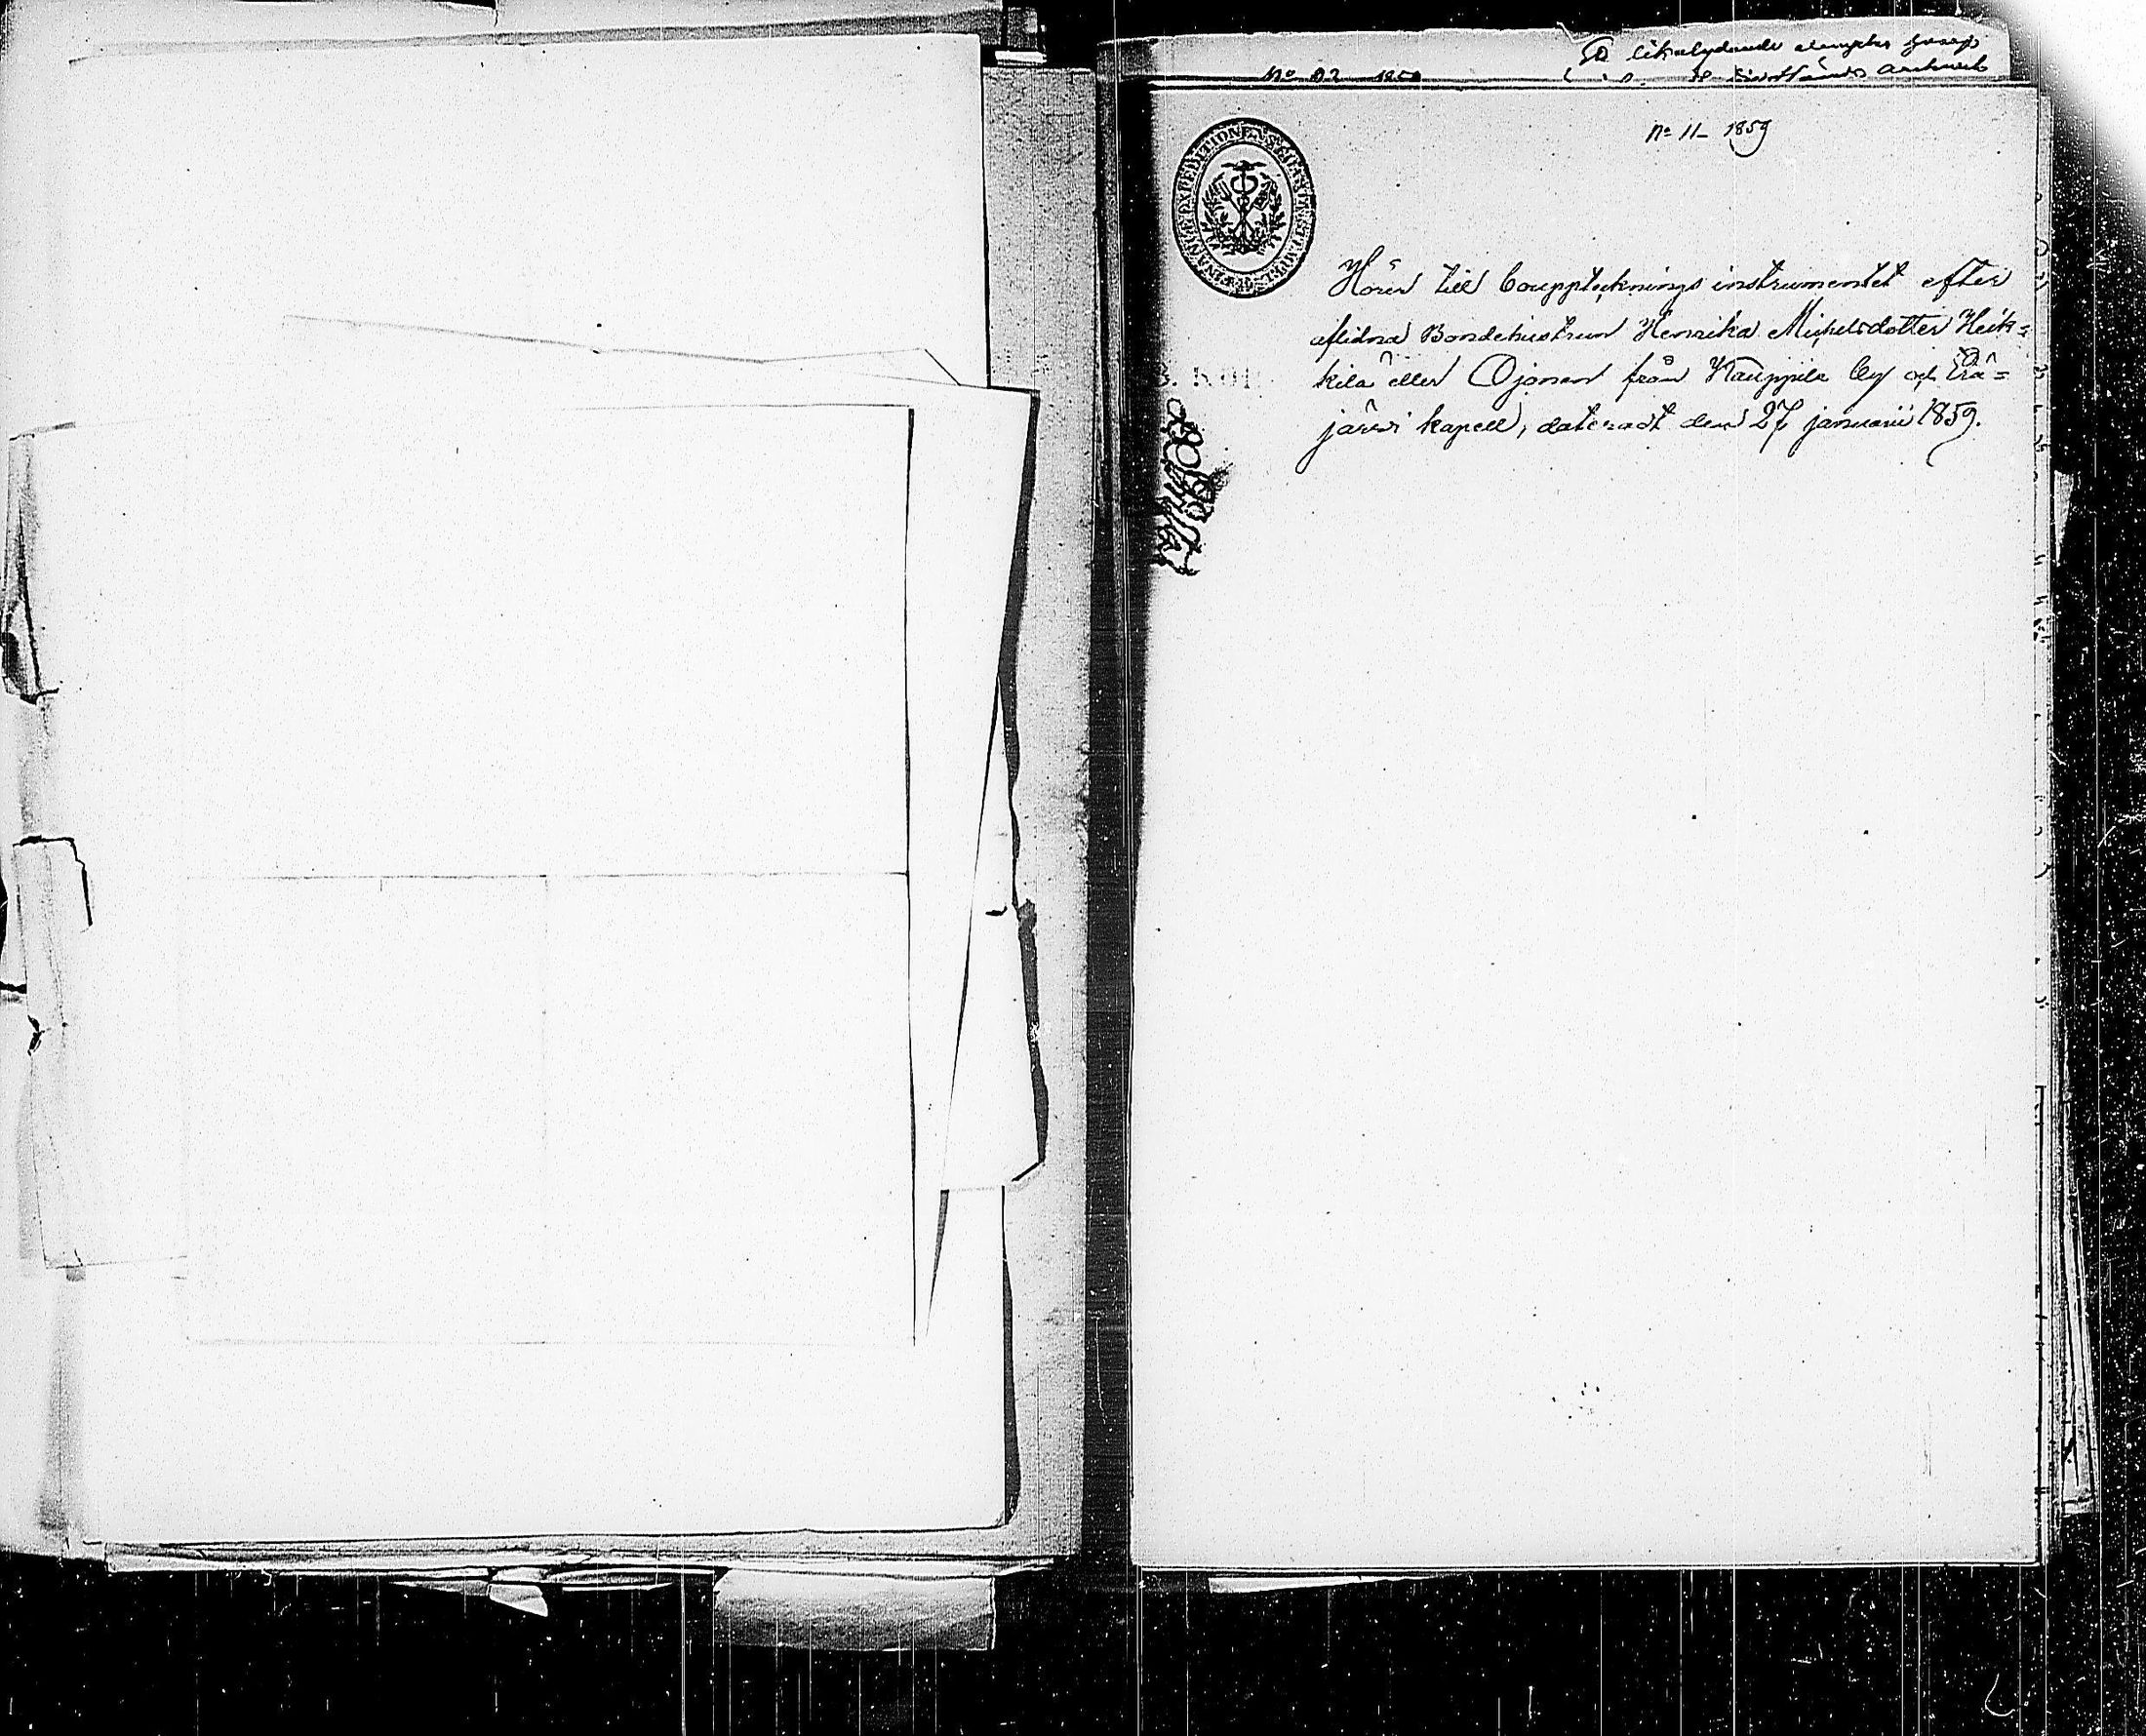 Två likalydande exemplar
No 11 – 1859
FINANCE EXPEDITIONENS
Hörer till Bouppteknings instrumentet efter
aflidna Bondehustrun Henrika Michelsdotter Heik=
kilä eller Ojanen från Kauppila by och Erä=
järvi kapell, dateradt den 27 januarii 1859.